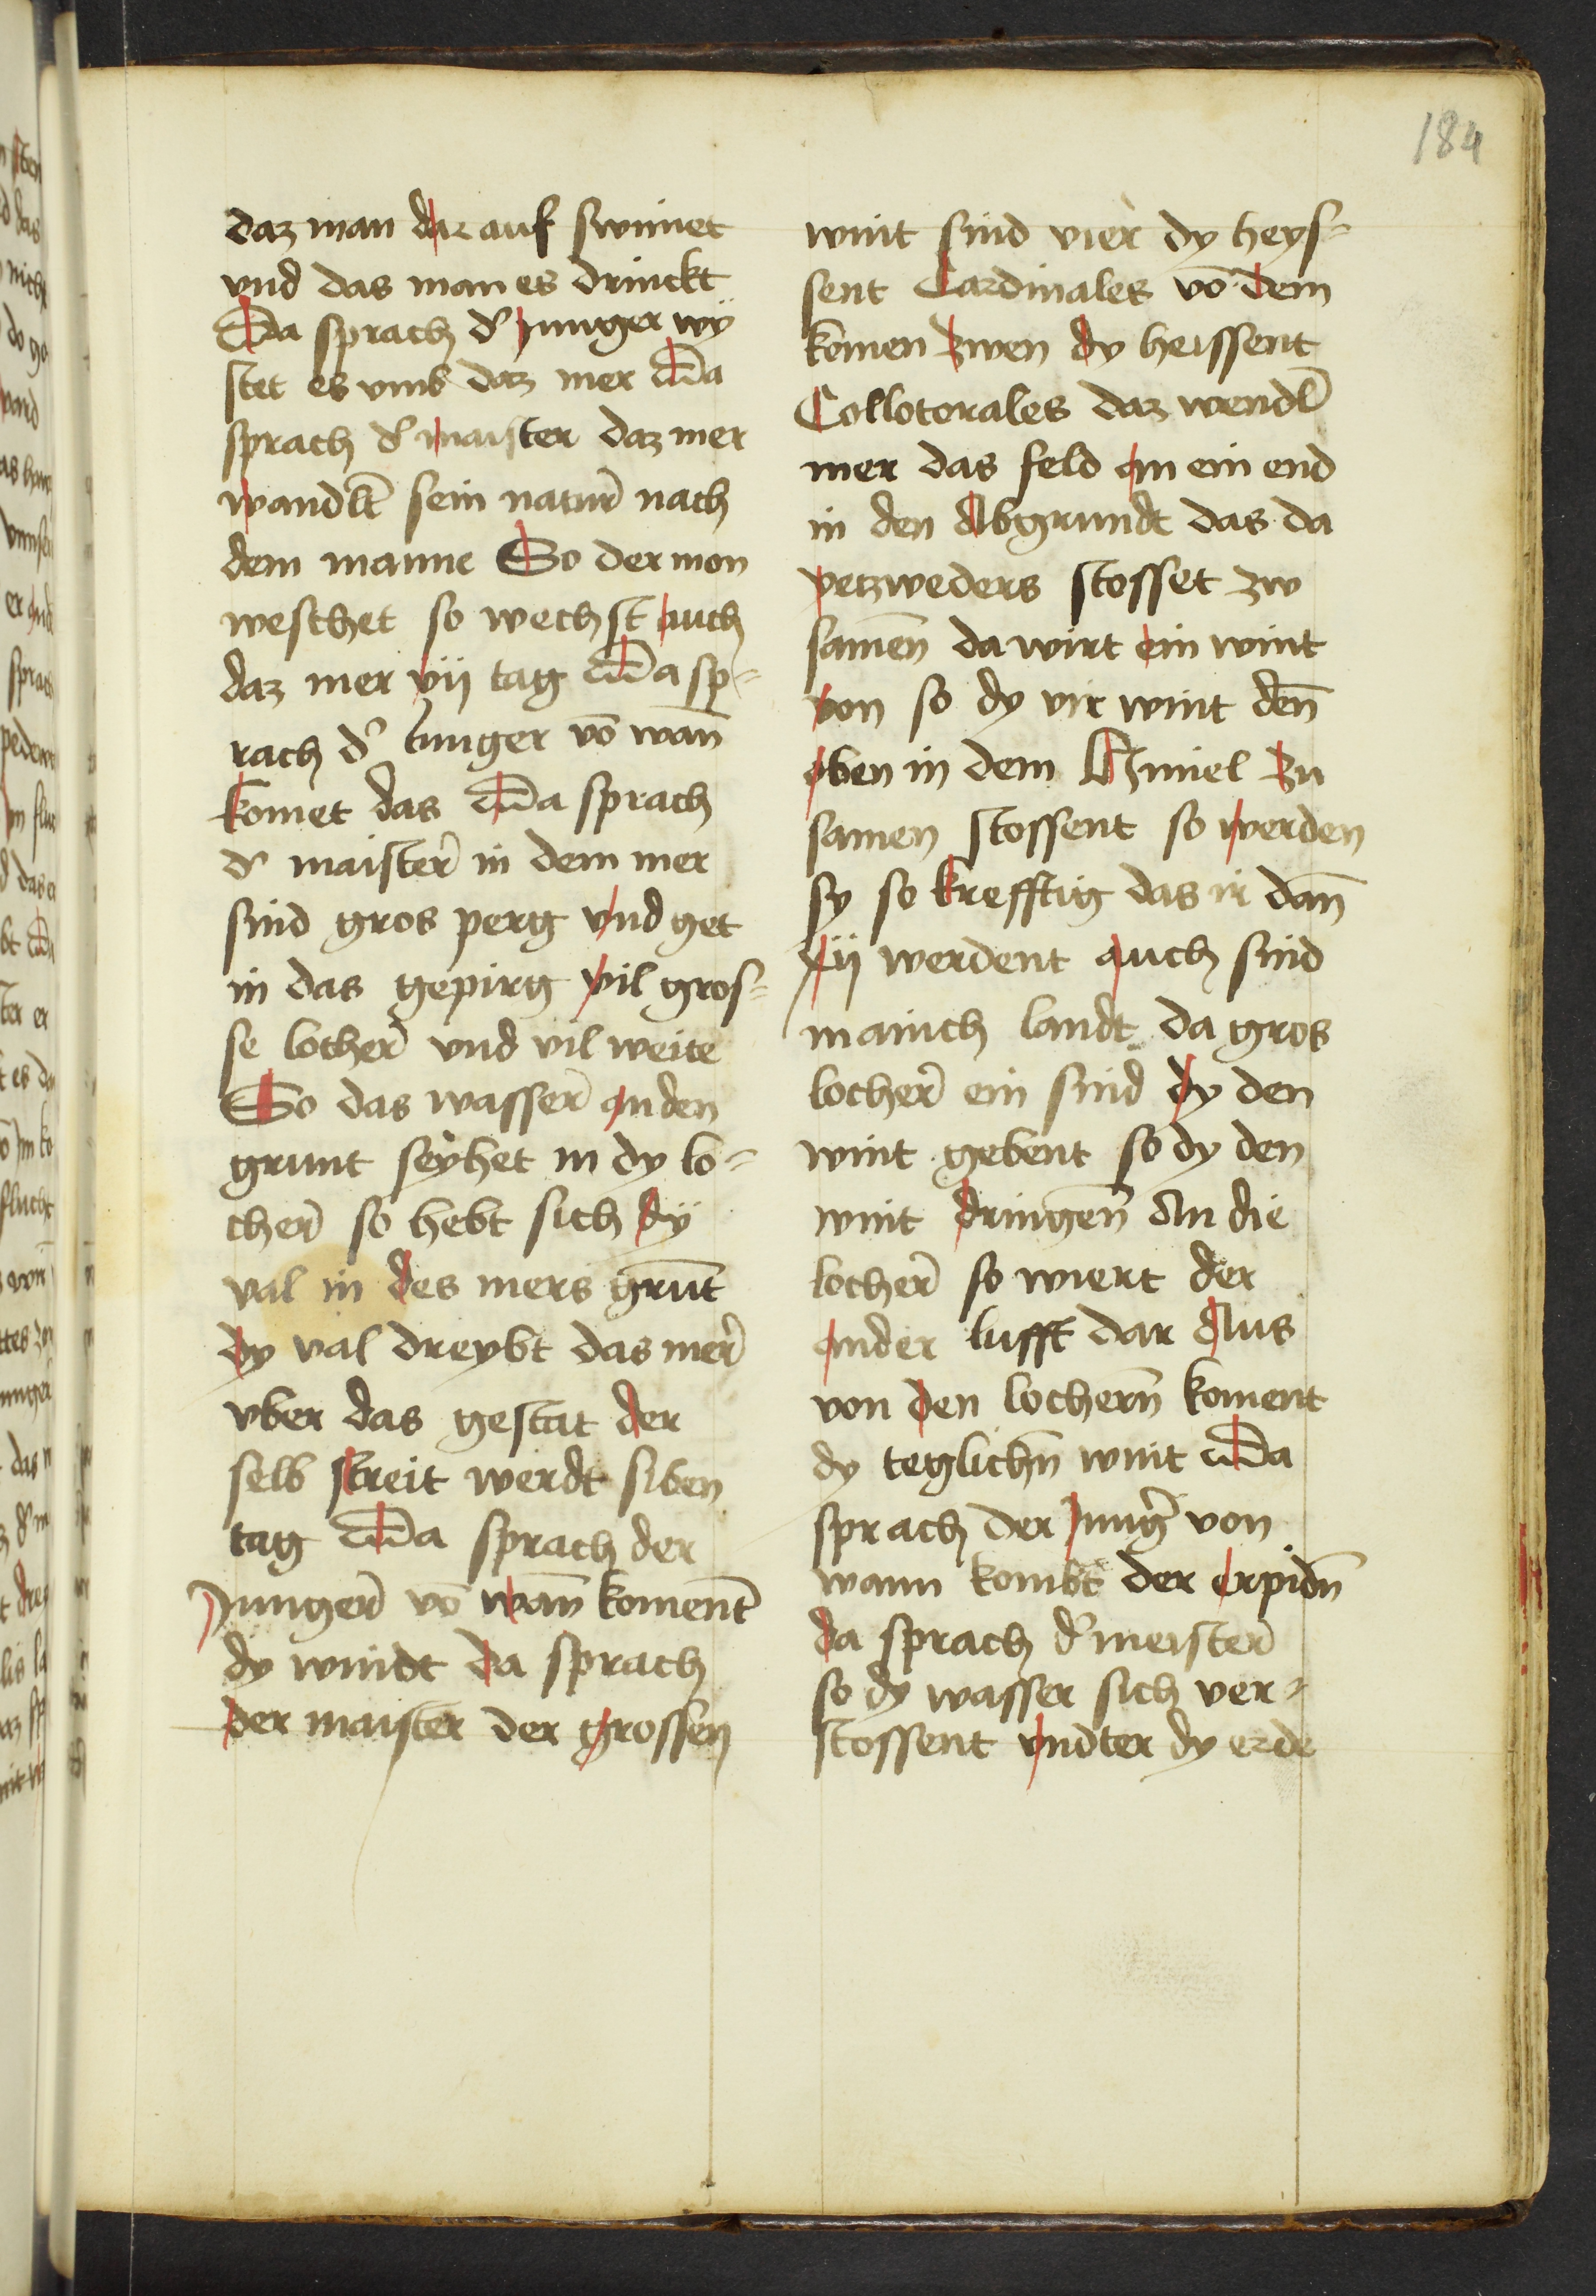 184
daz man dar auf swimet
vnd das man es drinckt
Da sprach d' junger wÿ
stet es vmb daz mer Da
sprach d' maister daz mer
wandlt̄ sein natur̄ nach
dem manne So der mon
weschet so wechst auch
daz mer vij tag Da sp=
rach d' Junger vō wan̄
komet das Da sprach
d' maister̄ in dem mer
sind gros perg vnd get
in das gepirg vil gros=
se locher̄ vnd vil weite
So das wasser̄ an den
grunt seÿhet in dy lo=
cher̄ so hebt sich dÿ
val in des mers grūt
dy val dreybt das mer̄
vber das gestat der
selb streit werdt siben
tag Da sprach der
Junger̄ vō wan̄ koment̄
dy windt da sprach
der maister der grossen
wint sind vier dy heys=
sent Cardinales vō dem
komen zwen dy heissent
Collotorales daz wendl̄
mer das feld an ein end
in den Abgrundt das da
yetzweders stosset zw
samen̄ da wirt ein wint
von so dy vir wint den̄
oben in dem Himel zu
samen stossent so werden
sy so krefftig das ir dan̄
xij werdent auch sind
mainch landt da gros
locher̄ ein sind dy den
wint gebent so dy den
wint dringen̄ An die
locher̄ so wiert der
ander lufft dar Aus
von den lochern̄ koment
dy teglichn̄ wint Da
sprach der Jungr̄ von
wann kombt der erpidn̄
da sprach d' meister̄
so dy wasser sich ver=
stossent vndter dy erde